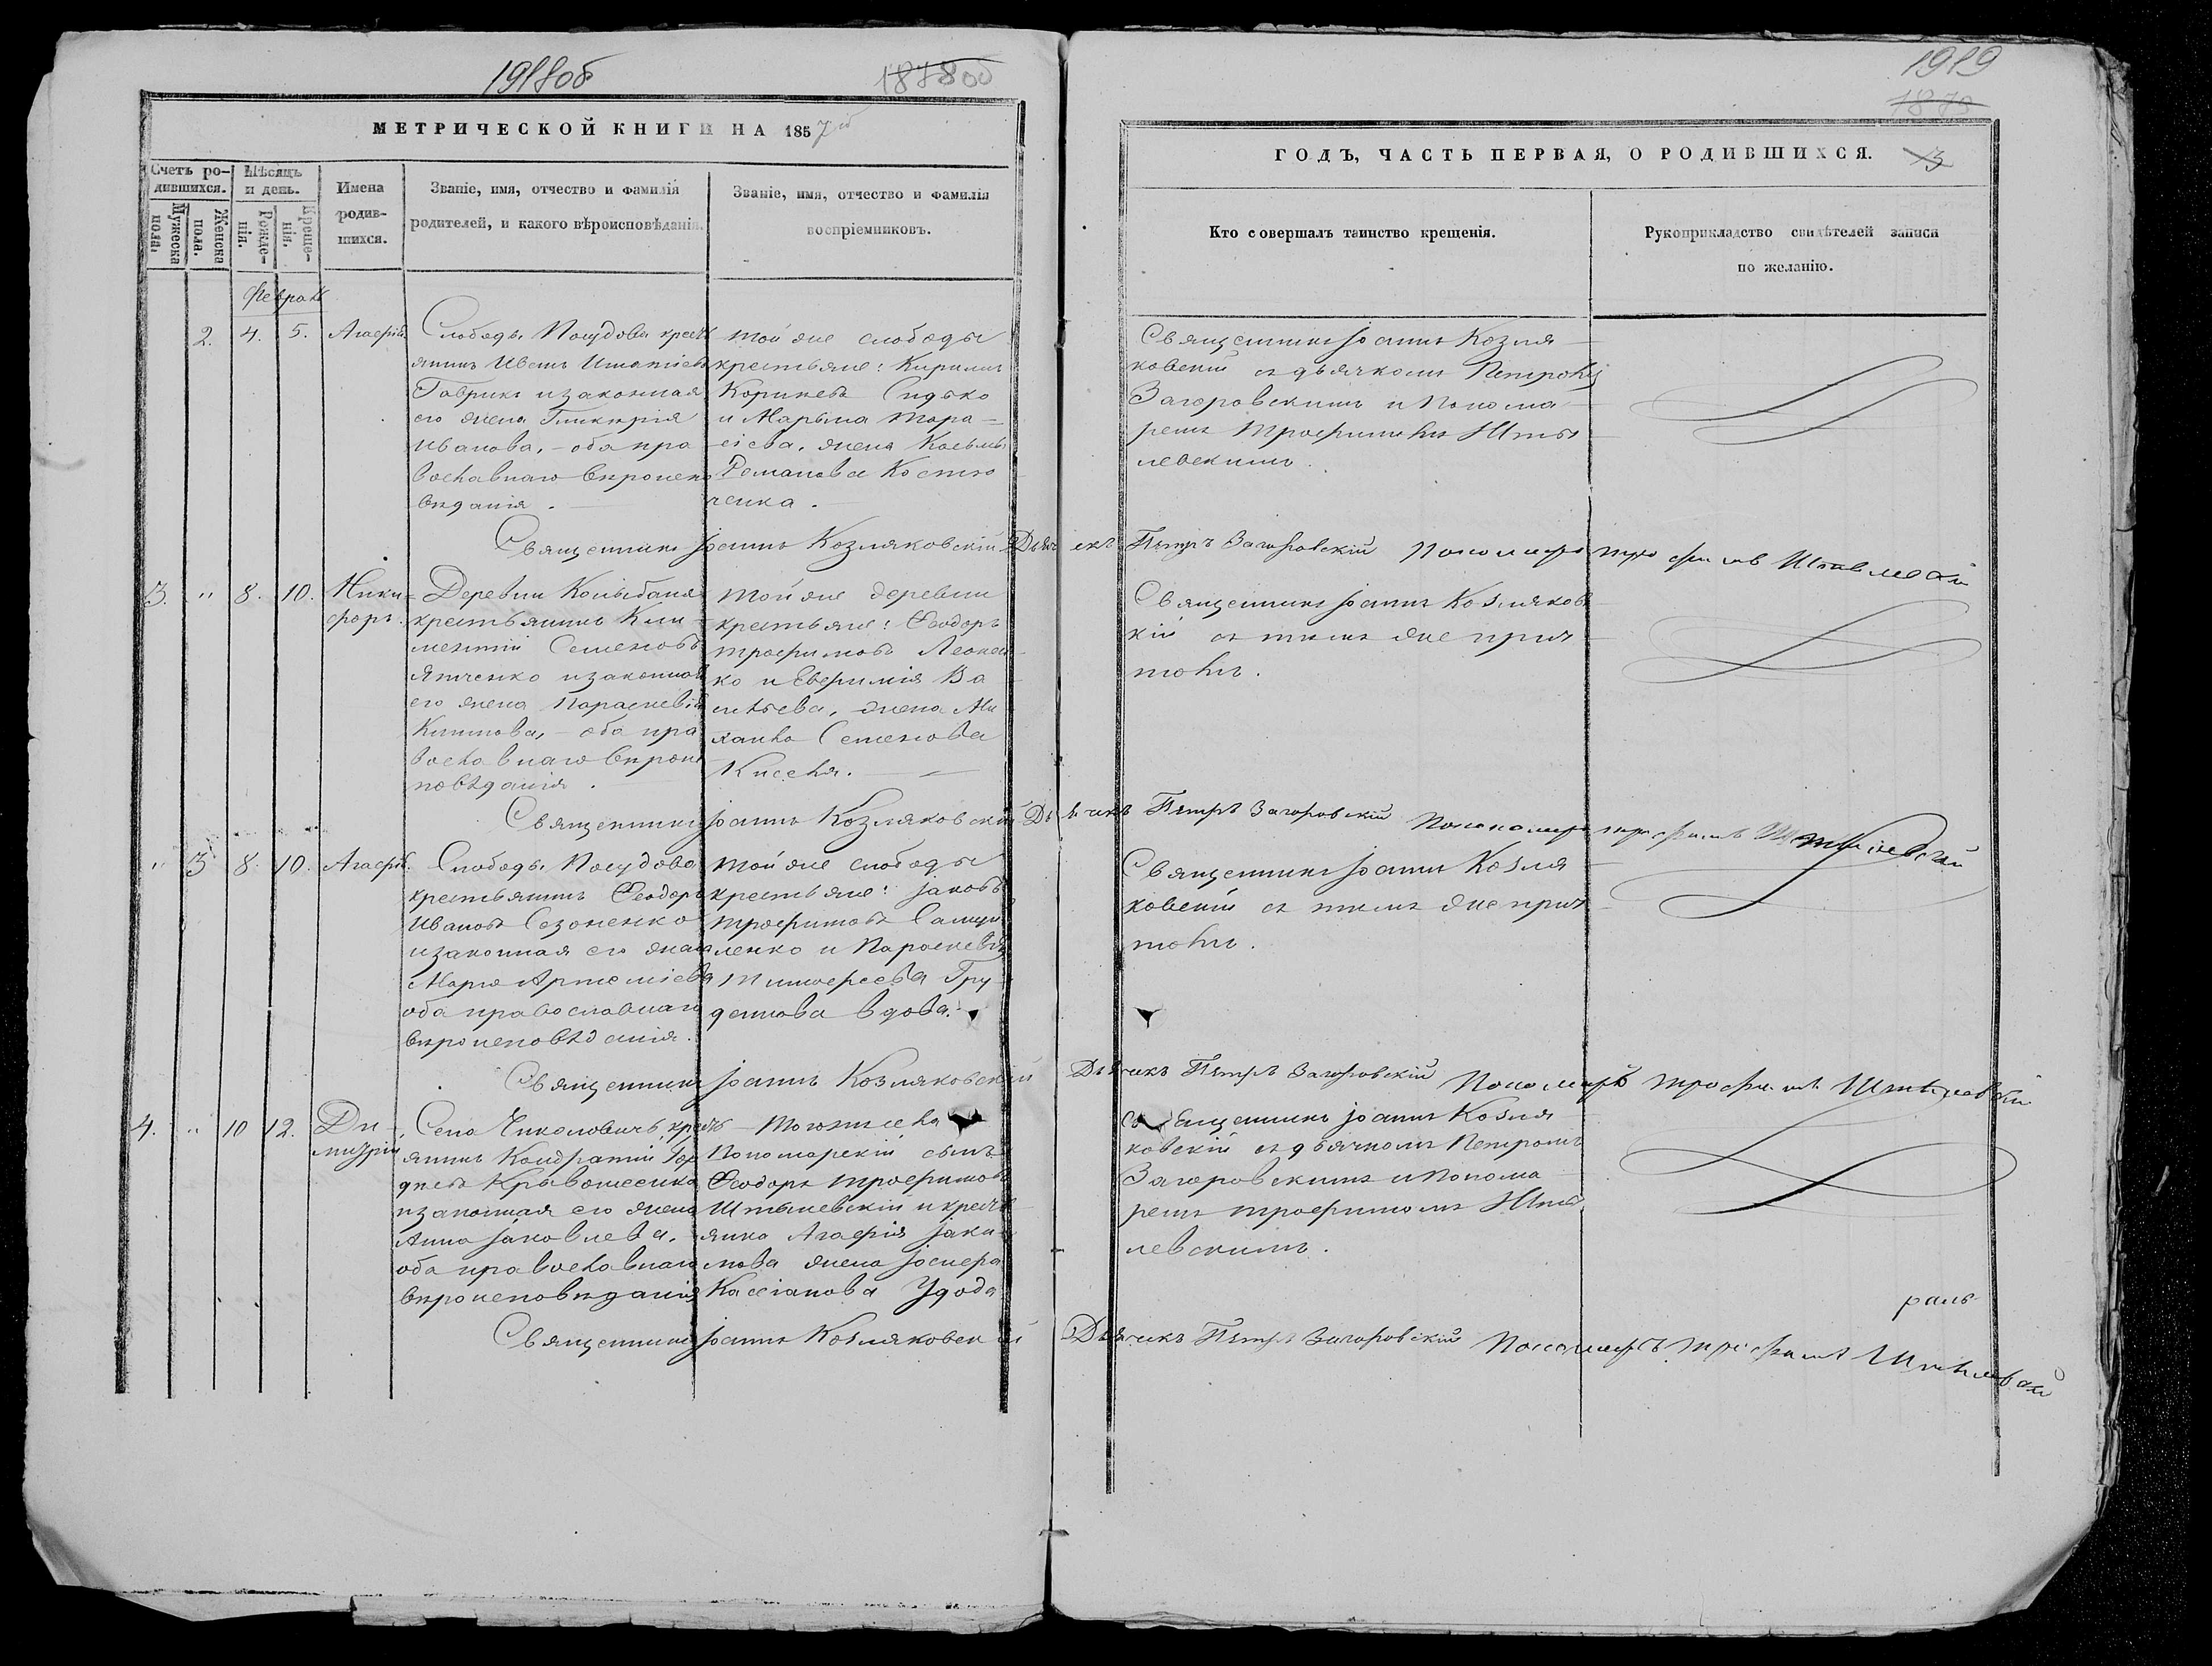 1918об
187800
МЕТРИЧЕСКОЙ КНИГИ НА 1857й
Счетъ ро-
дившихся.
Мужеска
пола.
Женска
пола.
Мѣсяцъ
и день.
Рожде-
нія.
Креще-
нія.
Имена
родив-
шихся.
Званіе, имя, отчество и фамилія
родителей, и какого вѣроисповѣданія.
Званіе, имя, отчество и фамилія
воспріемниковъ.
Февраль
2. 4. 5. Агафія
Слободы Посудова крестъ
янинъ Иванъ Игнатіевъ
Гаврикъ изаконная
его жена Гликерія
Иванова, - оба пра
вославнаго вѣроиспо
вѣданія.
Той же слободы
крестьяне: Кириллъ
Корнѣевъ Сидько
и Марьяна Тара-
сіева, жена Косьмы
Романова Костю
ченка.
Священникъ Іоаннъ Козляковскій
3. " 8. 10. Ники-
форъ.
Деревни Колыбаня
крестьянинъ Кли-
ментій Семеновъ
Ятченко изаконная
его жена Параскевія
Климова, - оба пра
вославнаго вѣроис
повѣданія.
Той же деревни
крестьяне: Феодоръ
Трофимовъ Леонен
ко и Евфимія Ва
сильева, жена Ми
хаила Семенова
Киселя.
Священникъ Іоаннъ Козляковскій
" 3 8. 10. Агафія.
Слободы Посудова
крестьянинъ Феодоръ
Ивановъ Сезоненко
изаконная его жена
Марія Артеміева
оба православнаго
вѣроисповѣданія.
Той же слободы
крестьяне: Іаковъ
Трофимовъ Самуй
ленко и Параскевія
Тимофеева Гру
денкова вдова.
Священникъ Іоаннъ Козляковскій
4. " 10 12. Ди-
митрій
Села Чиколовичъ, крестъ
янинъ Кондратій Гор
дѣевъ Кравошеенко
изаконная его жена
Анна Іаковлева.
оба православнаго
вѣроисповѣданія
Тогожъ села
Пономарскій сынъ
Феодоръ Трофимовъ
Штылевскій икрестъ
янка Агафія Іаки
мова жена Іосифа
Кассіанова Удода
Священникъ Іоаннъ Козляковскій
1919
1879
13
ГОДЪ, ЧАСТЬ ПЕРВАЯ, О РОДИВШИХСЯ.
Кто совершалъ таинство крещенія.
Рукоприкладство свидѣтелей записи
по желанію.
Священникъ Іоаннъ Козля
ковскій съ дьячкомъ Петромъ
Загоровскимъ и Понома
ремъ Трофимомъ Шты
левскимъ.
Дьячекъ Петръ Загоровскій Пономарь Трофимъ Штылевскій
Священникъ Іоаннъ Козляковс
кій съ тѣмъ же прич
томъ.
Дьячекъ Петръ Загоровскій Пономарь Трофимъ Штылевскій
Священникъ Іоаннъ Козля
ковскій съ тѣмъ же прич
томъ.
Дьячекъ Петръ Загоровскій Пономарь Трофимъ Штылевскій
Священникъ Іоаннъ Козля
ковскій съ дьячкомъ Петромъ
Загоровскимъ иПонома
ремъ Трофимомъ Шты
левскимъ.
раль
Дьячекъ Петръ Загоровскій Пономарь Трофимъ Штылевскій